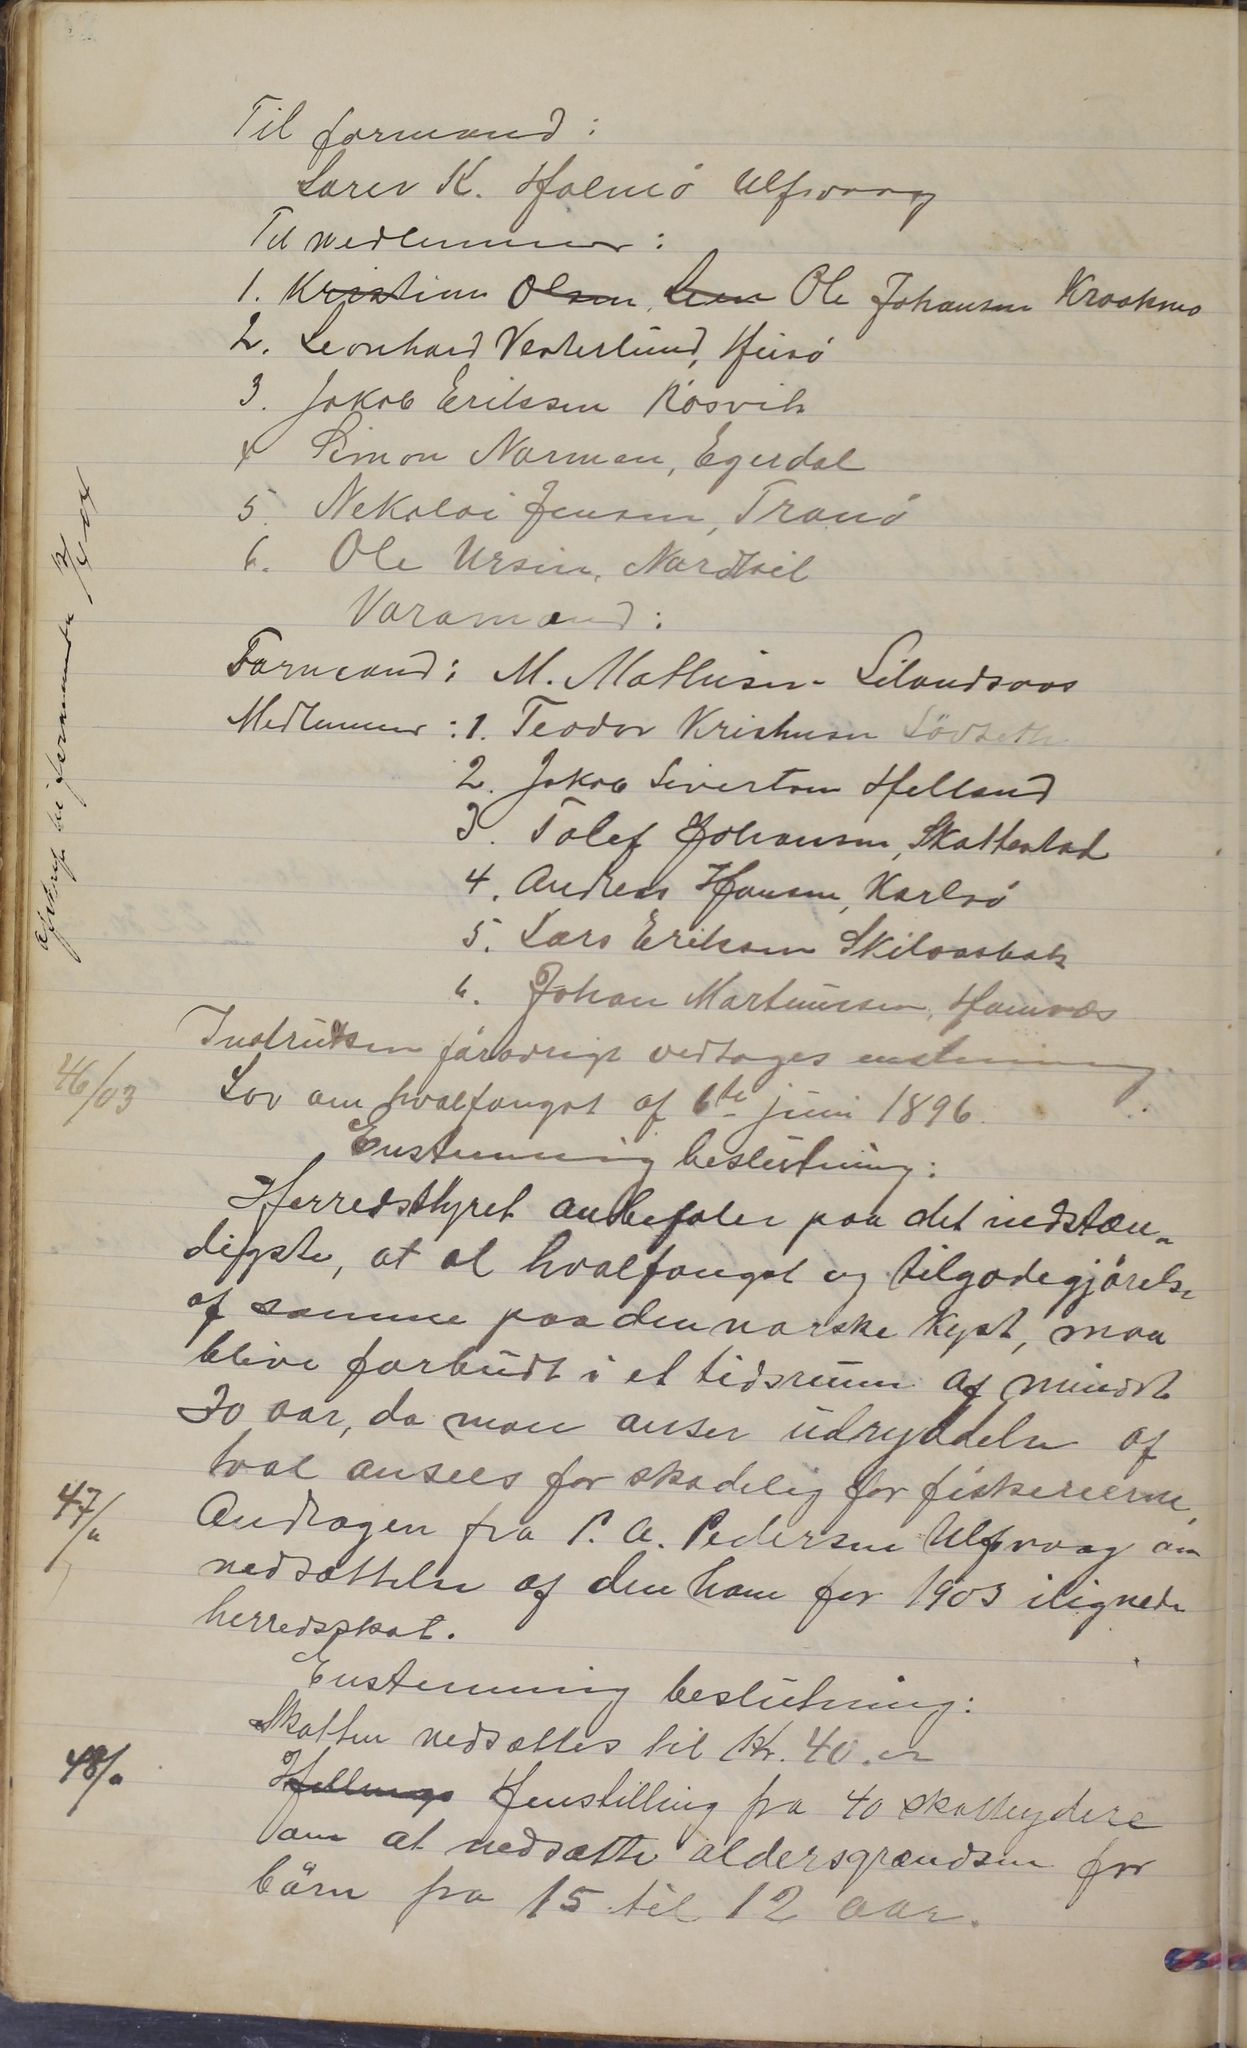 Til formand:
Sører K. Holmö Ulfsvaag
Til medlemmer:
1. Kristian Olsen, Leen Ole Johansen Kraakmo
2. Leonhard Vesterlund, Husö
3. Jakob Eriksen Røsvik
4 Simon Norman, Egerdal
5. Nekolai Jensen, Tranö
6. Ole Ursin, Nordkil
Varamænd:
Formand: M. Mathisen Lilandsaas
Medlemmer: 1. Teodor Kristensen
2. Jakob Sivertsen Helland
3. Tolef Johansen, Skattestad
4. Andreas Hansen, Karlsö
5. Lars Eriksen Skilvasbak
6. Johan Martinussen, Hamnæs
Instruksen forövrigt vedtages enstemmig
46/03 Lov om hvalfangst af 6te juni 1896.
Enstemmig beslutning:
Herredstyret anbefaler paa det indstæn-
digste, at al hvalfangst og tilgodegjörelse
af samme paa den norske kyst, maa
blive forbudt i et tidsrum af mindst
20 aar, da man anser udryddelse af
hval ansees for skadelig for fiskerierne,
47/" Andragen fra P. A. Pedersen Ulfsvaag om
nedsættelse af den ham for 1903 ilignede
herredsskat.
Enstemmig beslutning:
Skatten nedsættes til Kr. 40.
48/" Henstilling fra 40 skatteydere
om at nedsætte aldersgrændsen for
börn fra 15 til 12 aar.
Afskrift til formændene